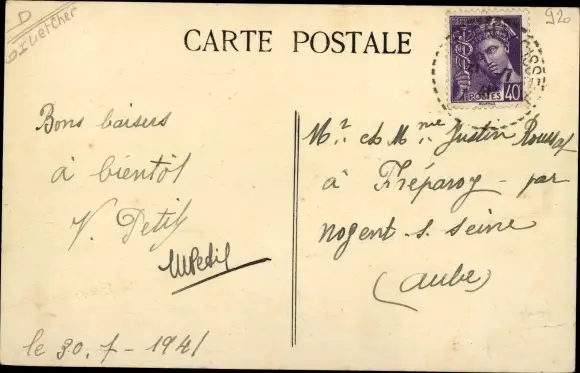 D
Loir et Cher
920
CARTE POSTALE
POSTES 40
Bons baisers
à bientôt
V. Petit
MPetit
le 30. 7 - 1941
Mr. et Mme Justin
à Fréparoy - par
nogent s. seine
(aube)